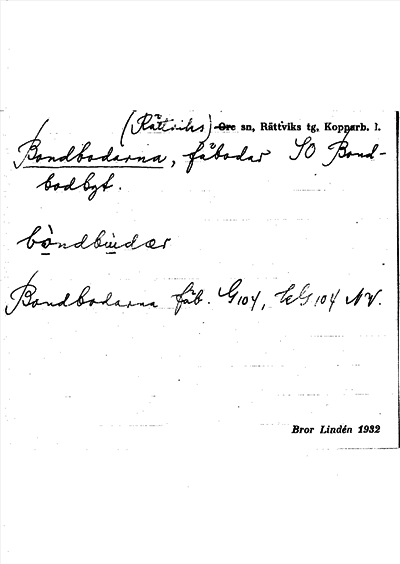 (Rättviks) Ore sn, Rättviks tg, Kopparb. l.
Bondbodarna, fäbodar SO Bond-
bodbgt.
bòndbùdær
Bondbodarna fäb. G104, EG104 NV.
Bror Lindén 1932